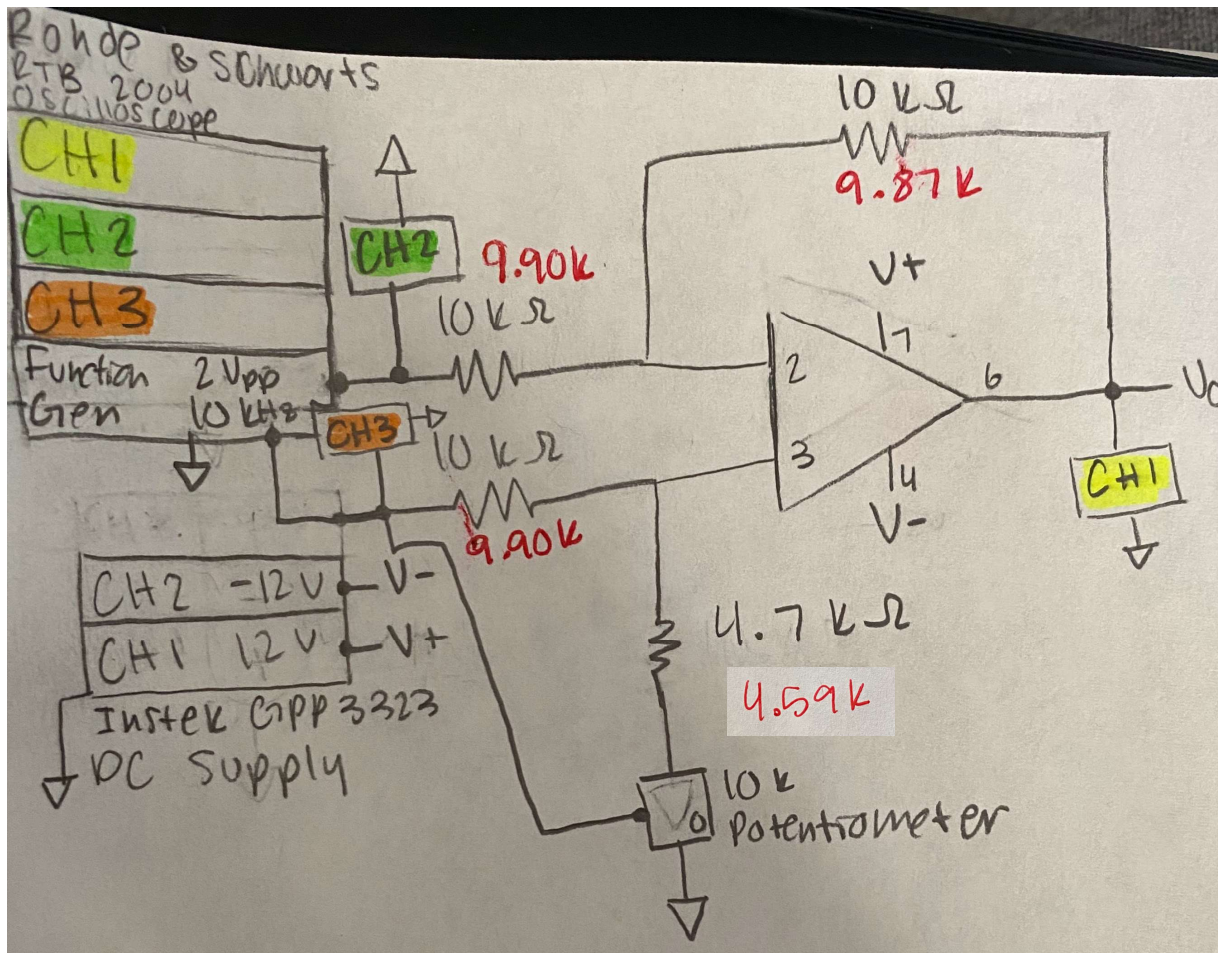 Rohde & SChwarts
RTB 2004
OSCilloscope
CH1
CH2
CH3
Function 2 Vpp
Gen 10 kHz
CH2
9.90k
10 kΩ
10 kΩ
9.87k
V+
7
2
6
3
4
V-
CH3
10 kΩ
9.90k
CH1
CH2 -12 V
V-
CH1 12 V
V+
Instek GPP 3323
DC Supply
4.7 kΩ
4.59k
10 k
Potentiometer